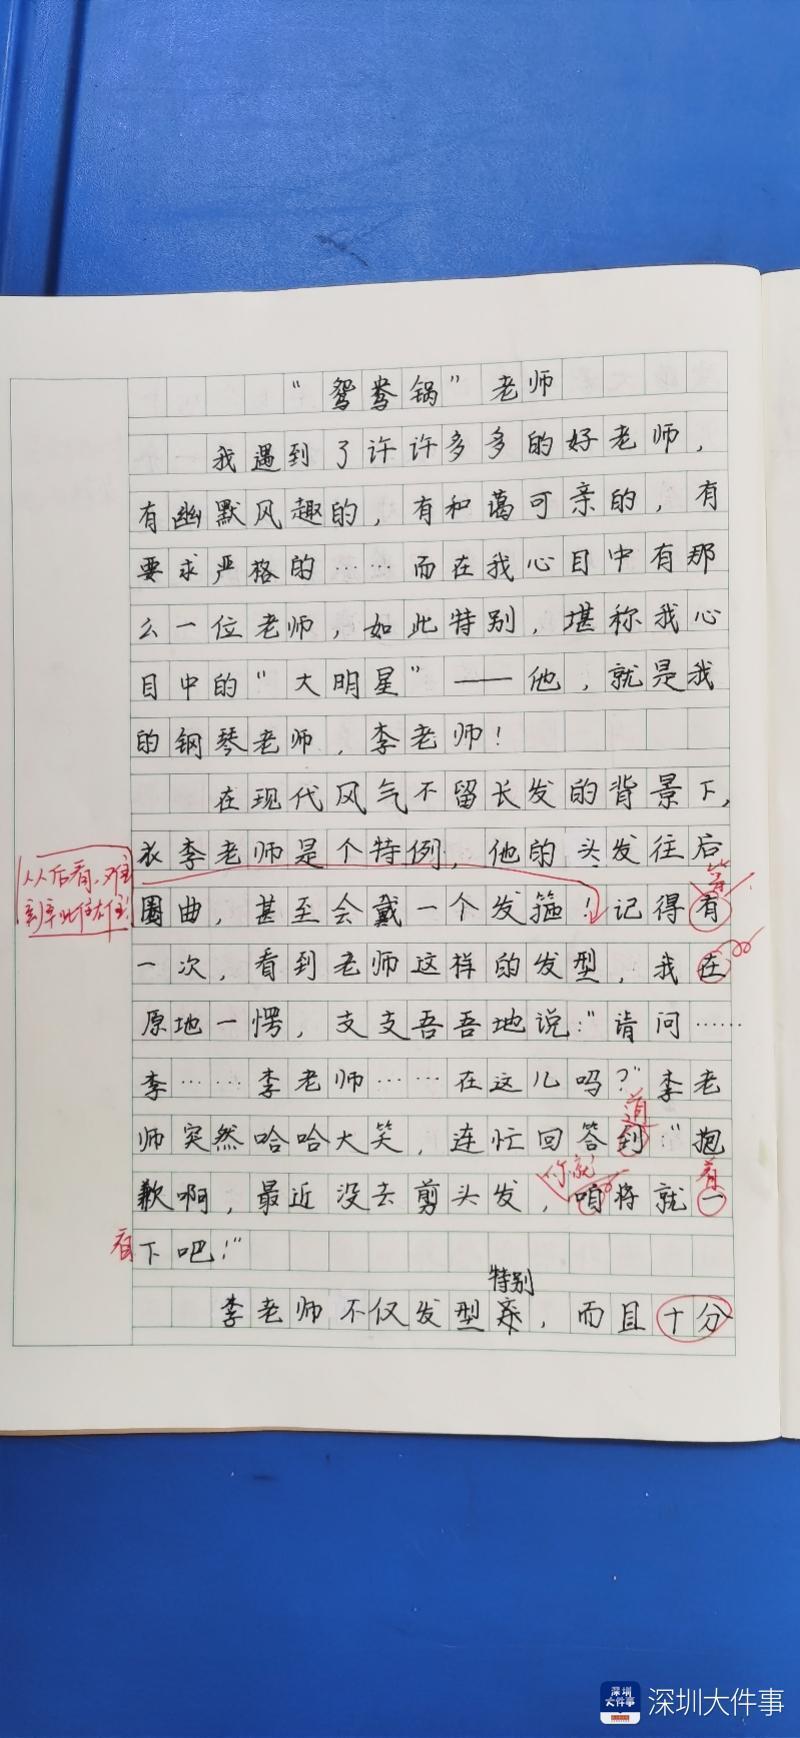 “鸳鸯锅”老师
我遇到了许许多多的好老师，
有幽默风趣的，有和蔼可亲的，有
要求严格的……而在我心目中有那
么一位老师，如此特别，堪称我心
目中的“大明星”——他，就是我
的钢琴老师，李老师！
在现代风气不留长发的背景下，
李老师是个特例，他的头发往后
圈曲，甚至会戴一个发箍！记得有
第
从后看，难
一次，看到老师这样的发型，我在
原地一愣，支支吾吾地说：“请问……
李……李老师……在这儿吗？”李老
道
师突然哈哈大笑，连忙回答到：“抱
你就
着
歉啊，最近没去剪头发，咱将就一
看
下吧！”
特别
李老师不仅发型，而且十分
深圳大件事
深圳大件事